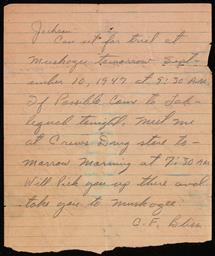 Jackson
Case set for trial at
Muskogee tomorrow Sept-
ember 10, 1947 at 9:30 A.M.
If Possible Come to Tah-
lequah tonight, meet me
at Crews Drug store to-
morrow morning at 7:30 AM
Will Pick you up there and
take you to Muskogee.
C. F. Bliss